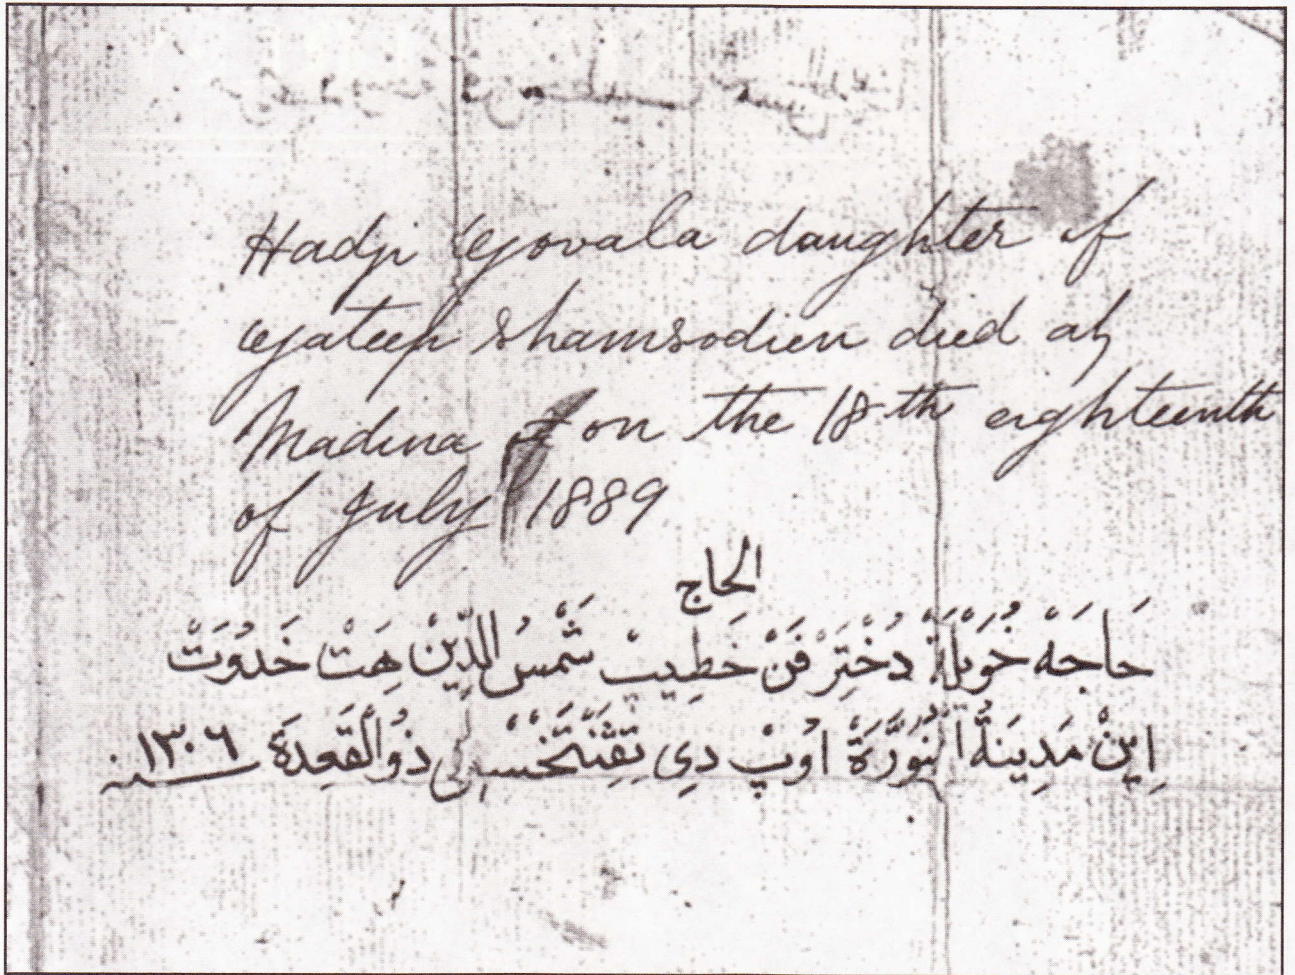 Hadji Gjovala daughter of
Gjateep Shamsodien died at
Madina on the 18th eighteenth
of July 1889
الحاج
حَاجَهْ خُوَيْلَةْ دُخْتِرْ فَنْ خَطِيبْ شَمْسُ الدِّيْنْ هِتْ خَدُوَتْ
اِيْنْ مَدِينَةُ اوُپْ دِى ذُوالْقَعِدَةَ سنه ١٣٠٦